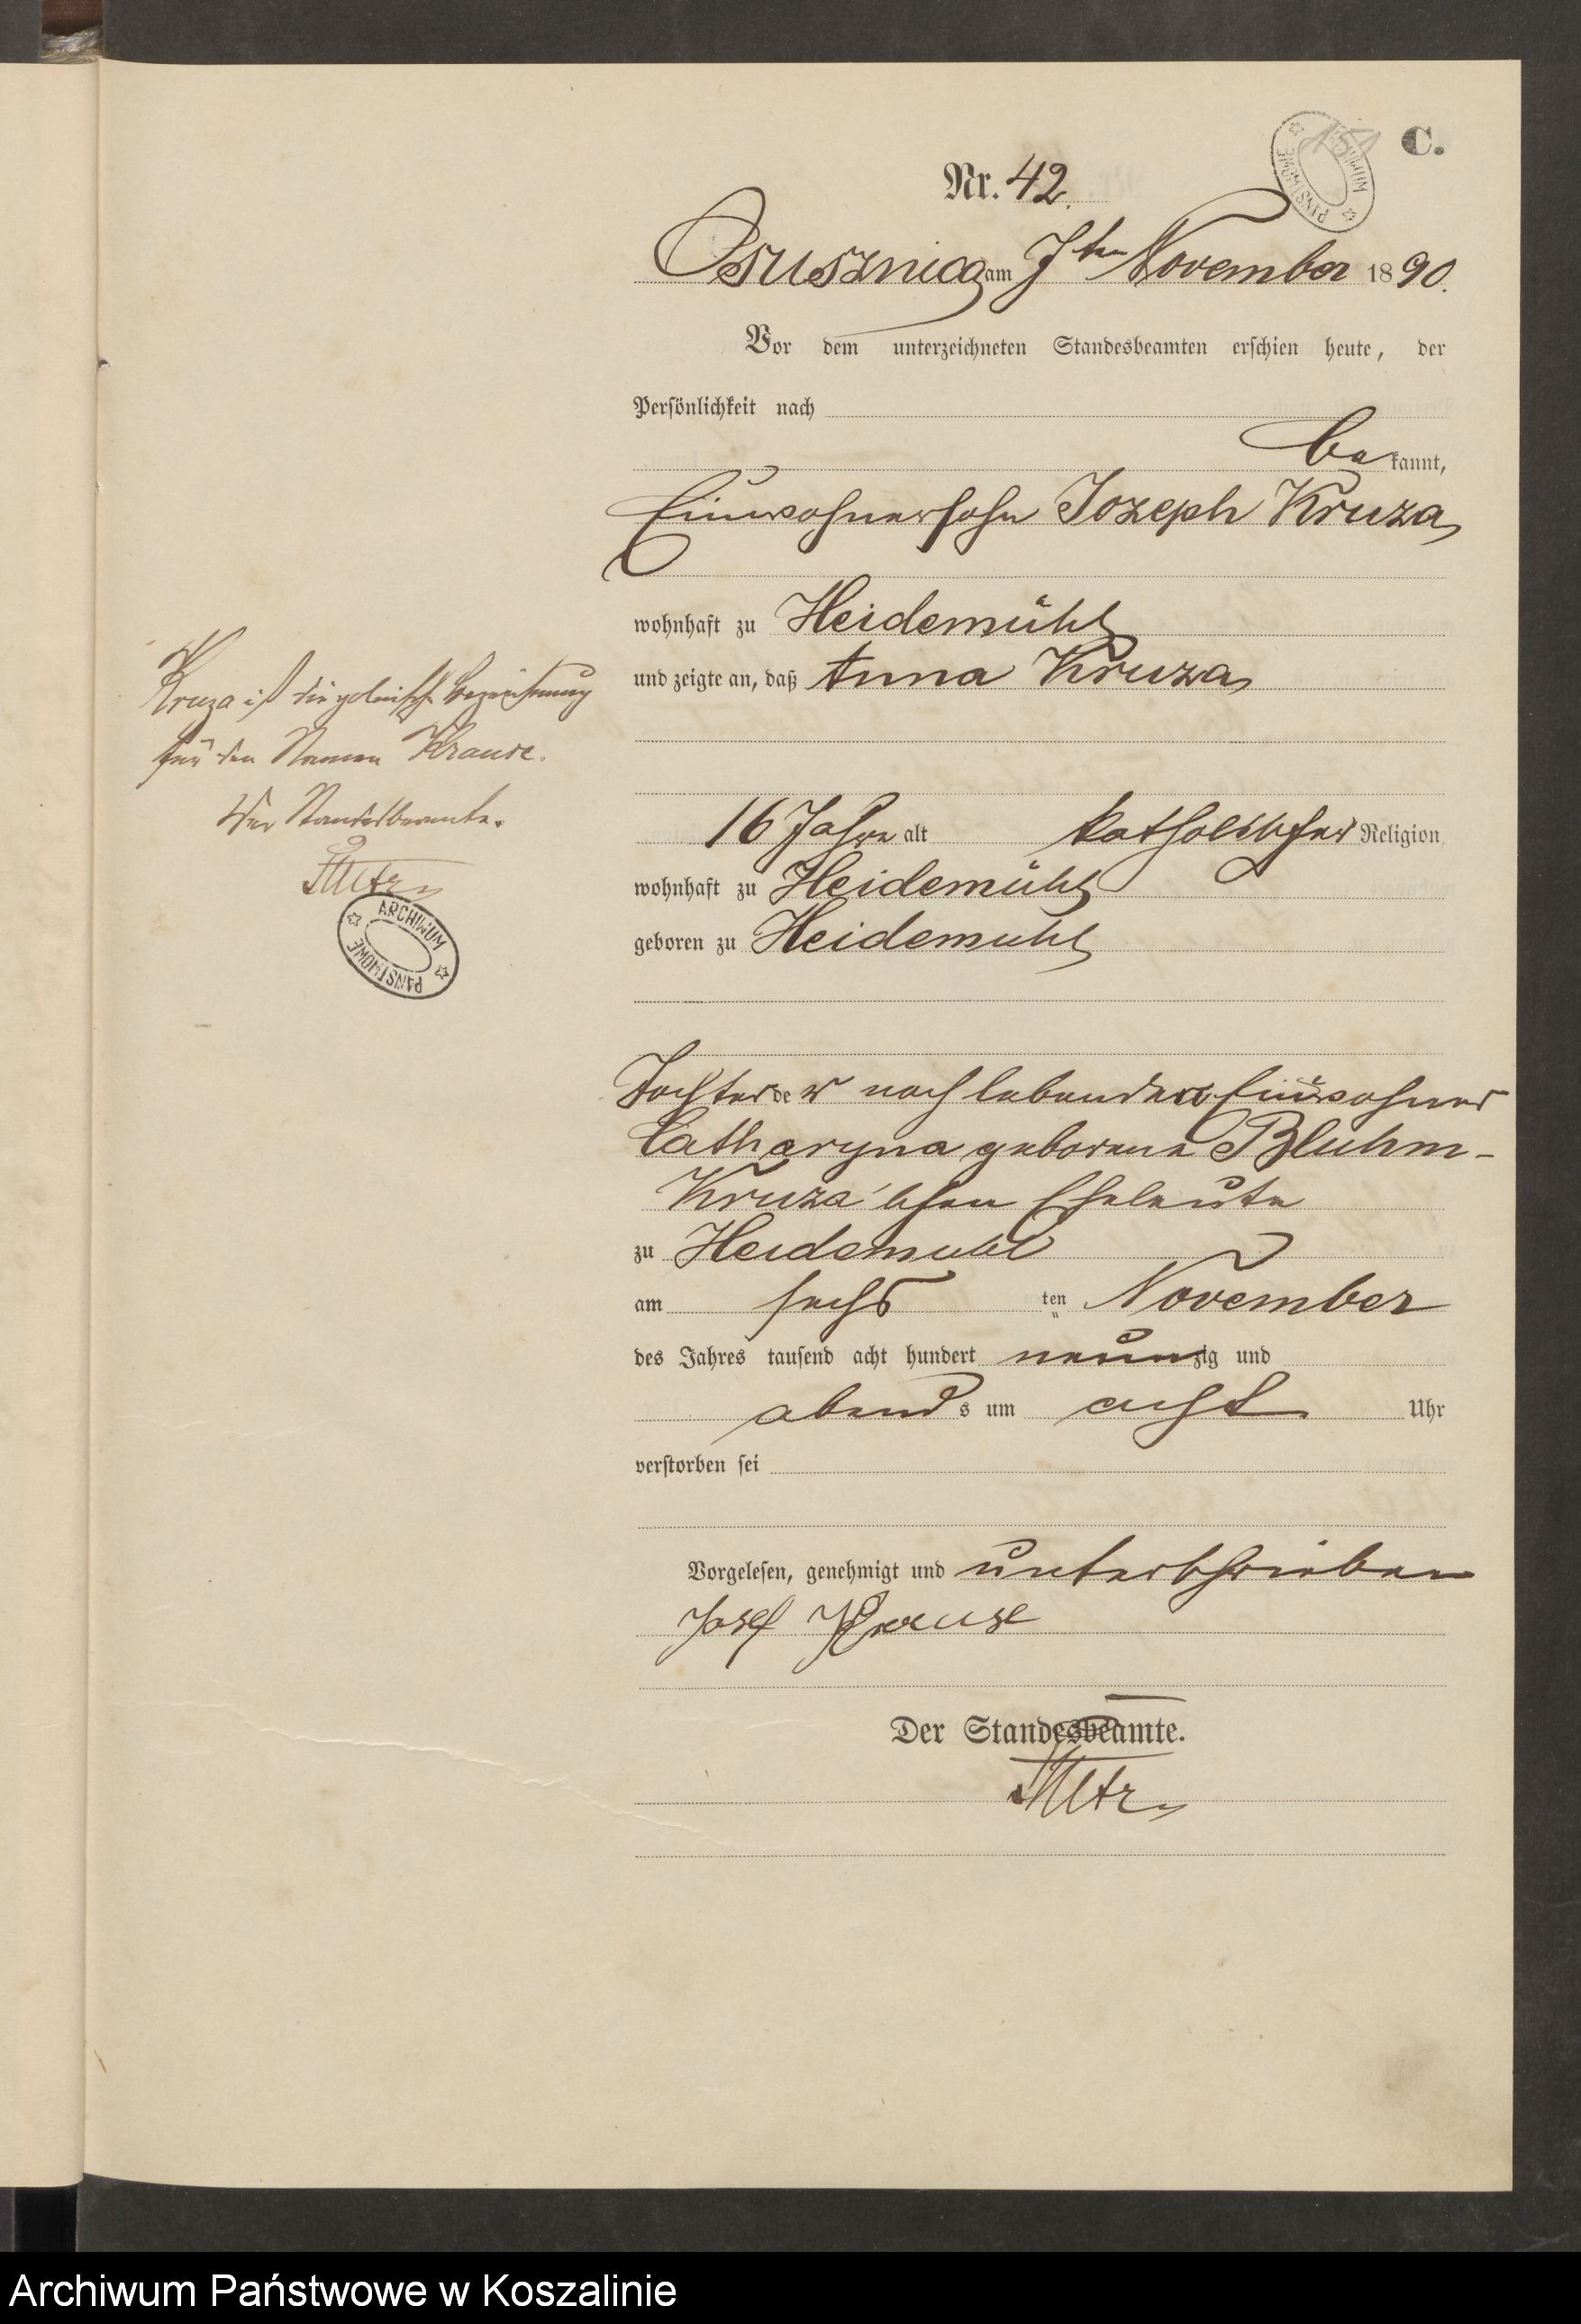 C.
151
ARCHIWUM PAŃSTWOWE
Nr. 42.
Ossusznica am 7ten November 1890.
Vor dem unterzeichneten Standesbeamten erschien heute, der
Persönlichkeit nach
bekannt,
Einwohnersohn Jozeph Kruza
wohnhaft zu Heidemühl
und zeigte an, daß Anna Kruza
16 Jahre alt katholischer Religion,
wohnhaft zu Heidemühl
geboren zu Heidemühl
Tochter der noch lebenden Einwohner
Catharyna geborene Bluhm-
Kruza'schen Eheleute
zu Heidemuhl
am sechs ten November
des Jahres tausend acht hundert neunzig und
abends um acht Uhr
verstorben sei
Vorgelesen, genehmigt und unterschrieben
Josef Krause
Der Standesbeamte.
Kruza ist die polnische Bezeichnung
für den Namen Krause.
Der Standesbeamte.
ARCHIWUM PAŃSTWOWE
Archiwum Państwowe w Koszalinie